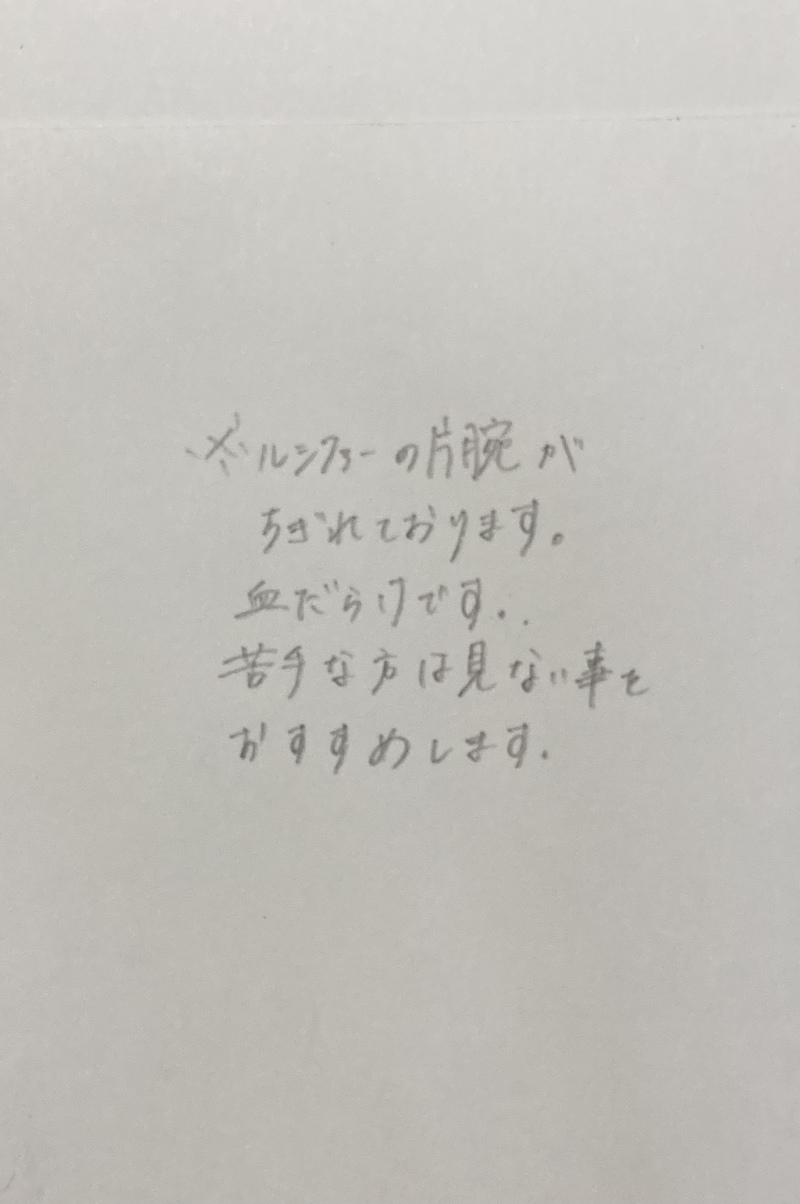 ※ルシファーの片腕が
ちぎれております。
血だらけです。.
苦手な方は見ない事を
おすすめします.